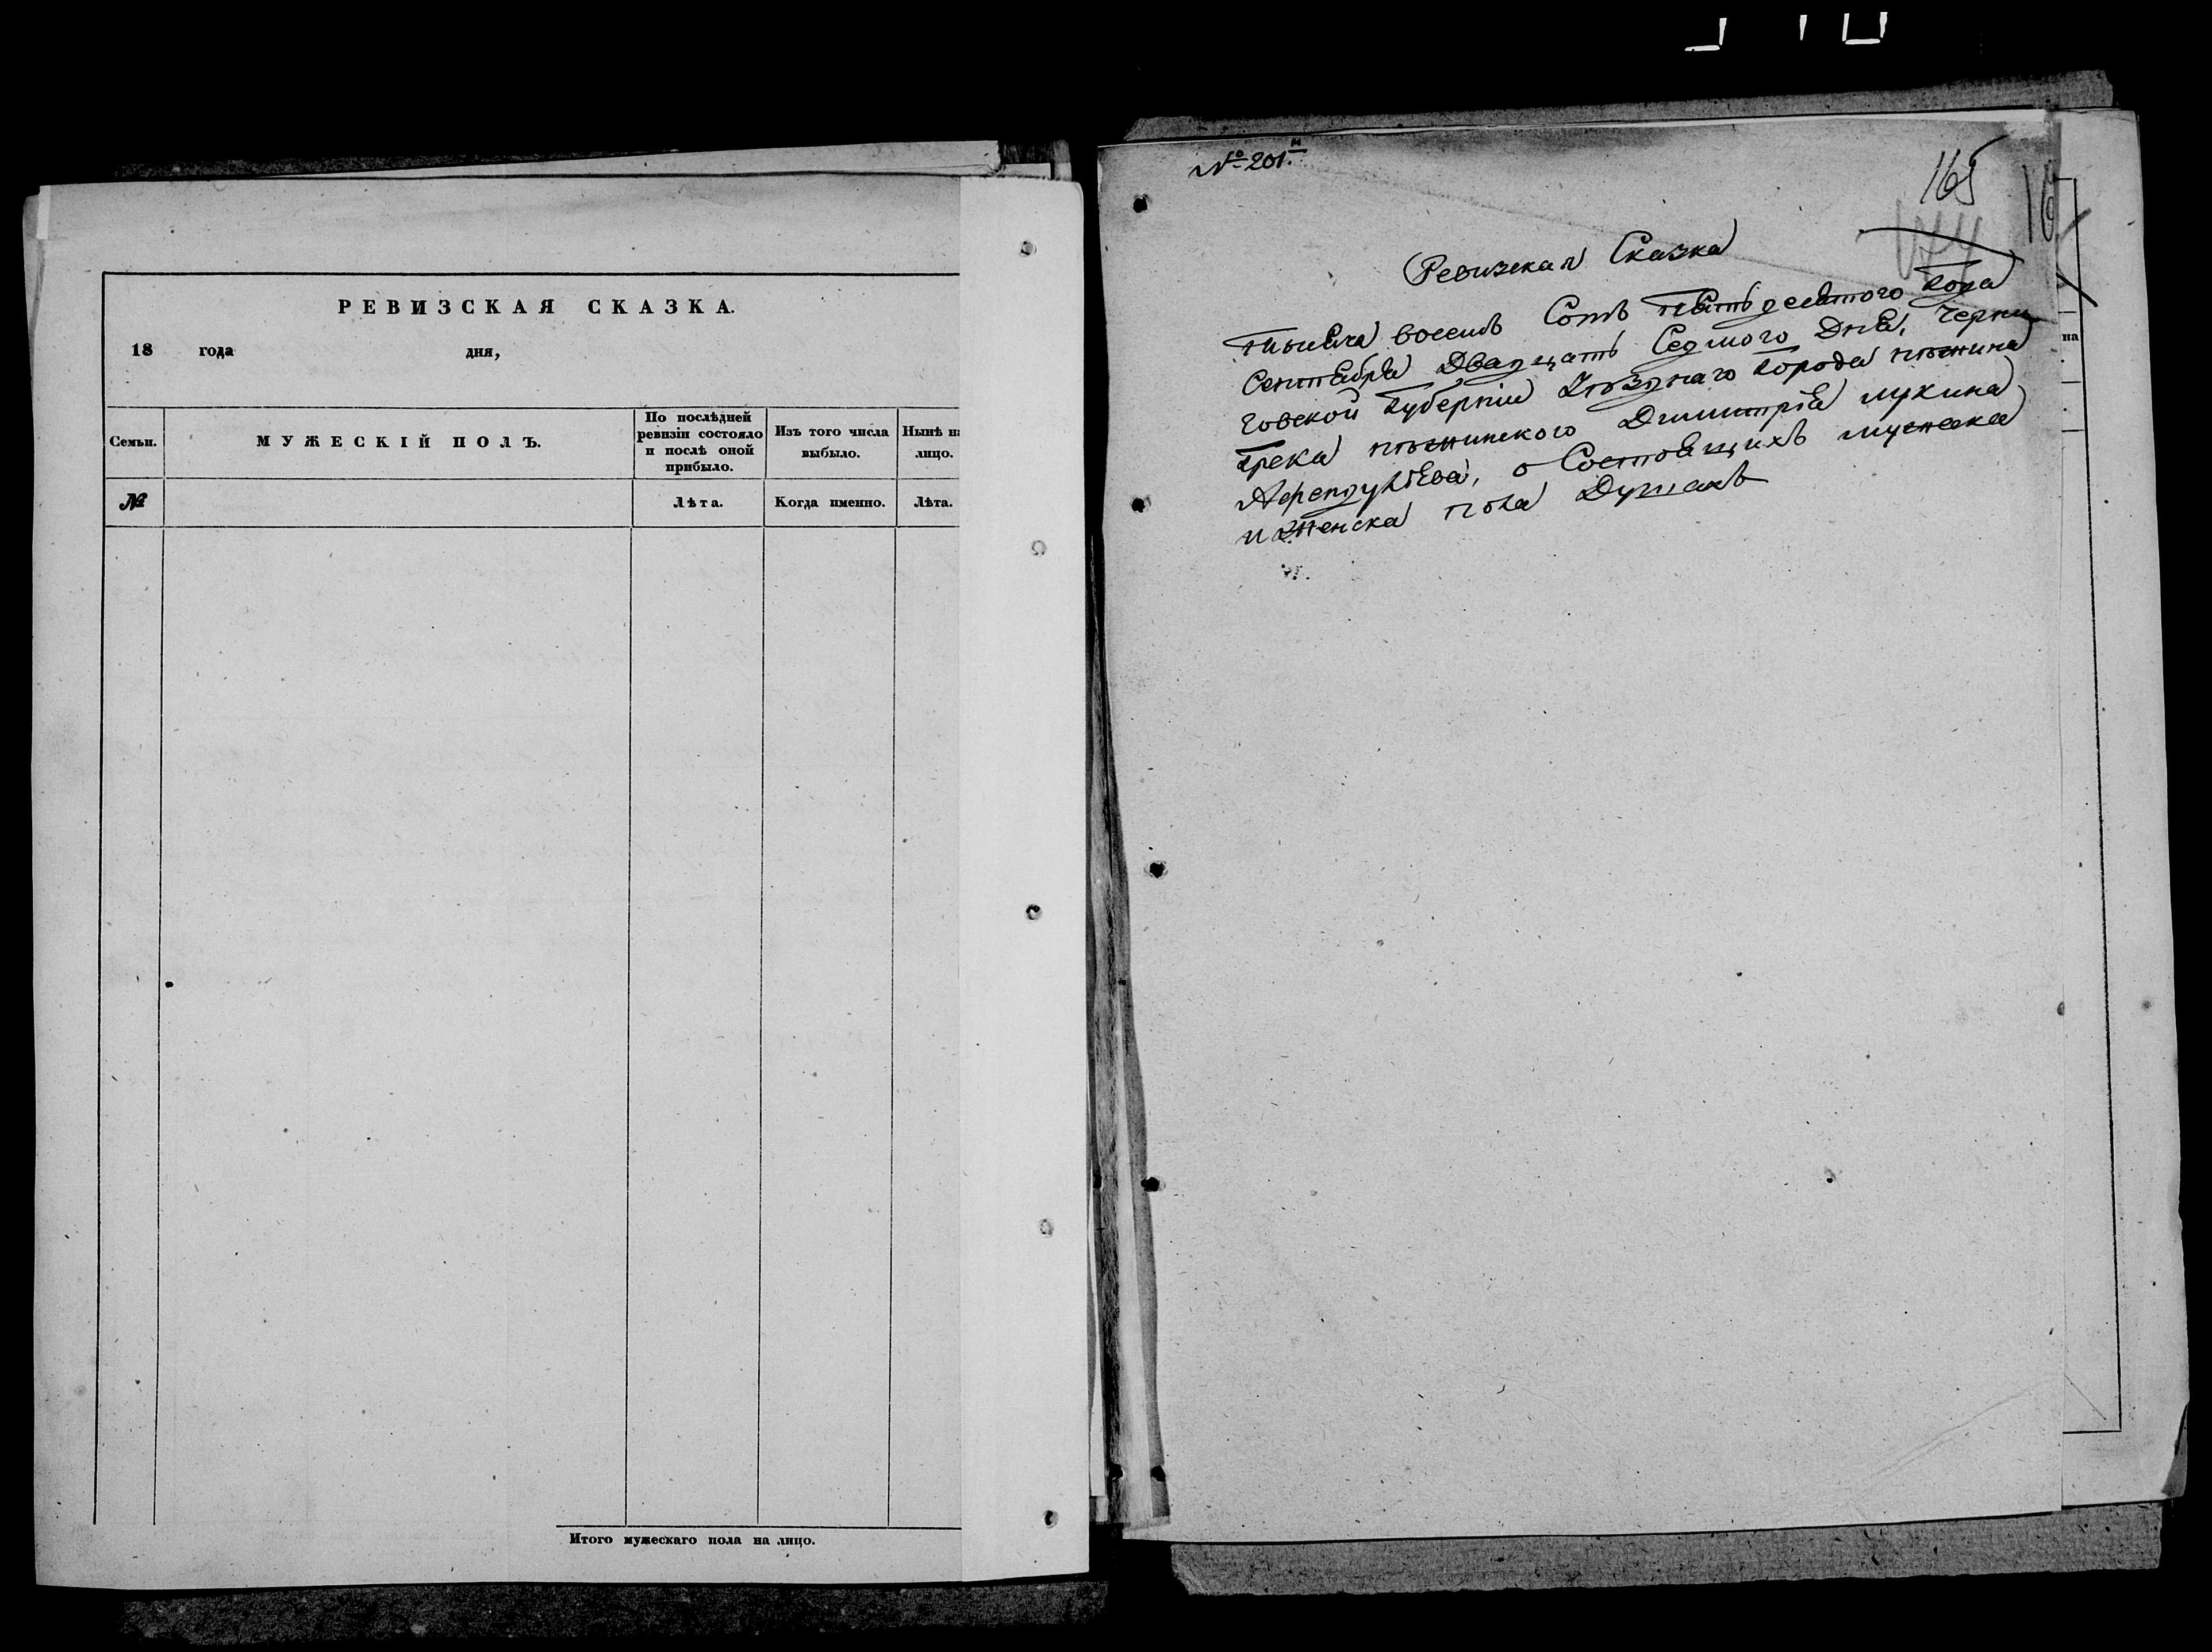 РЕВИЗСКАЯ СКАЗКА.
18 года дня,
Семьи.
МУЖЕСКІЙ ПОЛЪ.
По послѣдней ревизіи состояло и послѣ оной прибыло.
Изъ того числа выбыло.
Нынѣ на лицо.
№
Лѣта.
Когда именно.
Лѣта.
Итого мужескаго пола на лицо.
№ 201.й
165
174
16
Ревизская Сказка
тысяча восемь Сотъ пятьдесятого Года
Сентября Двадцать Седмого Дня, Черни
говской Губерніи Уѣзднаго Города нѣжина
Грека нѣжинского Димитрія лукина
Афендулѣева, о Состоящихъ мужска
и Женска пола Душахъ
на